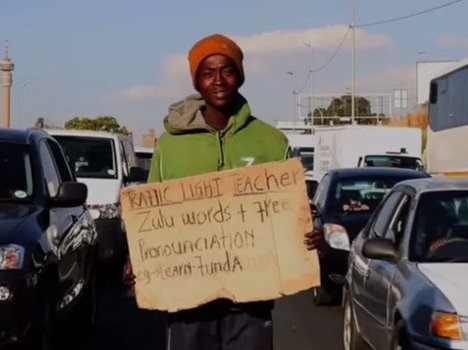 TRAFFIC LIGHT TEACHER
Zulu words + free
PRONUNCIATION
eg-LEARN-fundA